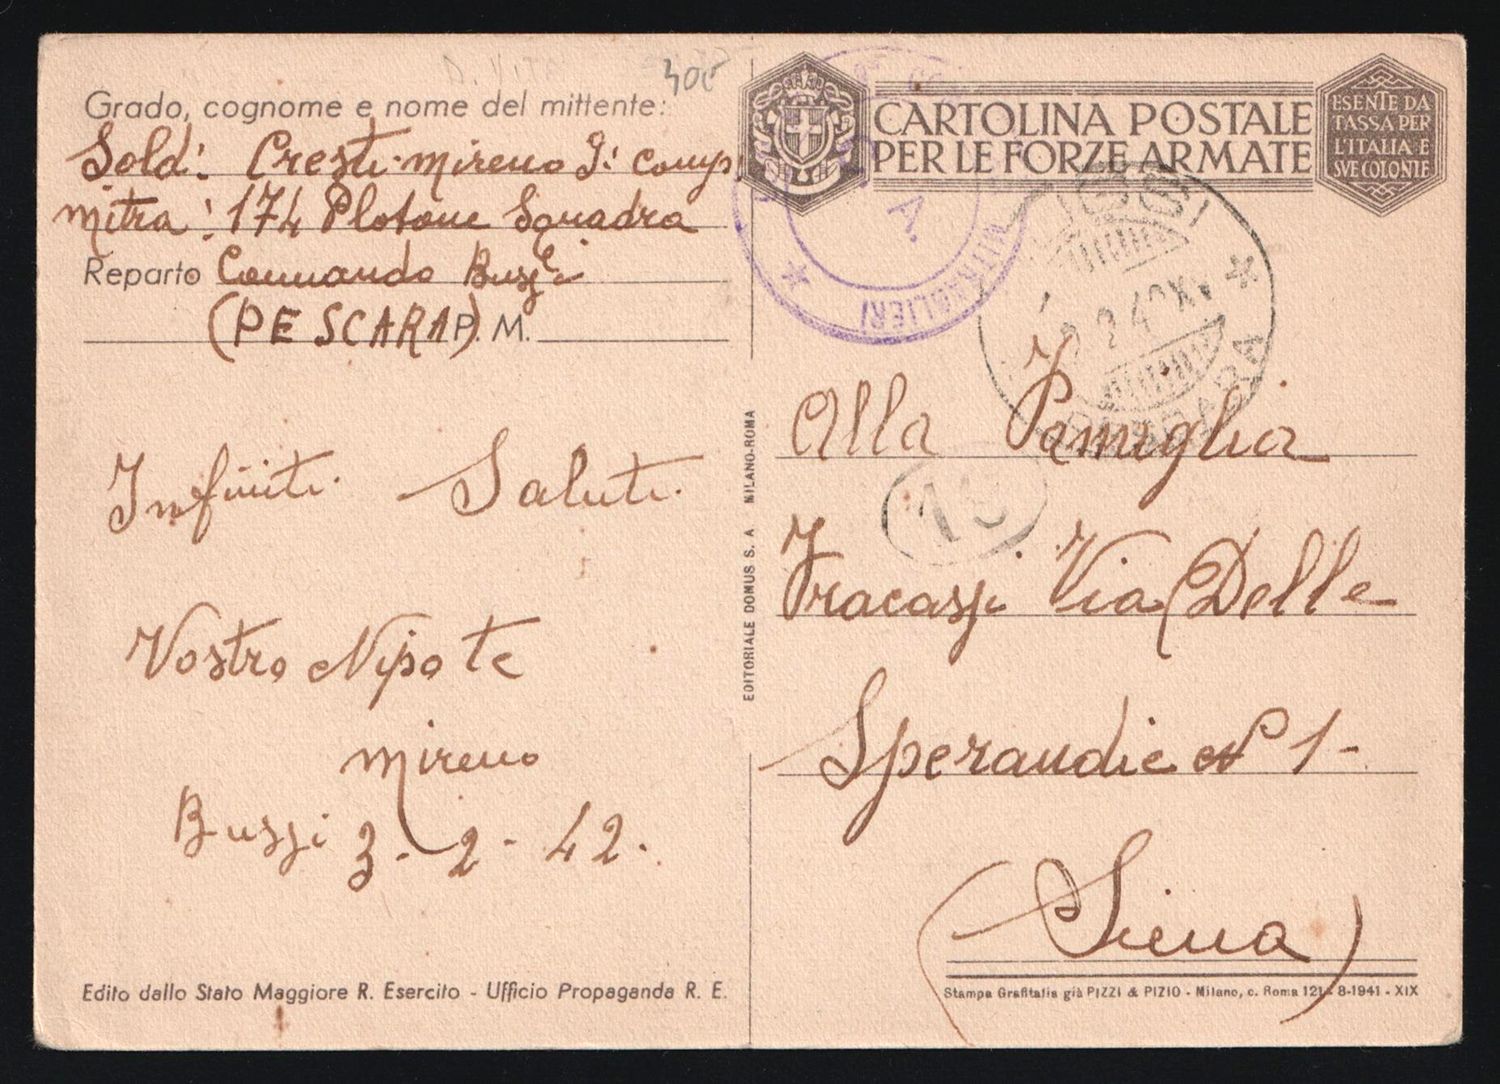 Grado, cognome e nome del mittente:
Sold: Cresti Mireno I: Comp
Mitra: 174 Plotone Squadra
Reparto Comando Bussi
(PESCARA) P. M.
Infiniti Saluti
Vostro Nipote
Mireno
Bussi 3-2-42.
Edito dallo Stato Maggiore R. Esercito - Ufficio Propaganda R. E.
EDITORIALE DOMUS S. A MILANO-ROMA
CARTOLINA POSTALE
PER LE FORZE ARMATE
ESENTE DA
TASSA PER
L'ITALIA E
SVE COLONIE
MITRAGLIERI
PESCARA
Alla Famiglia
Fracassi Via Delle
Sperandie N° 1-
(Siena)
Stampa Grafitalia già PIZZI & PIZIO - Milano, c. Roma 121 - 8-1941 - XIX